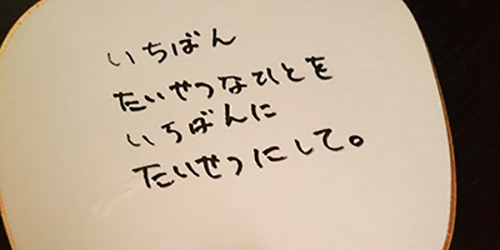 いちばん
たいせつなひとを
いちばんに
たいせつにして。